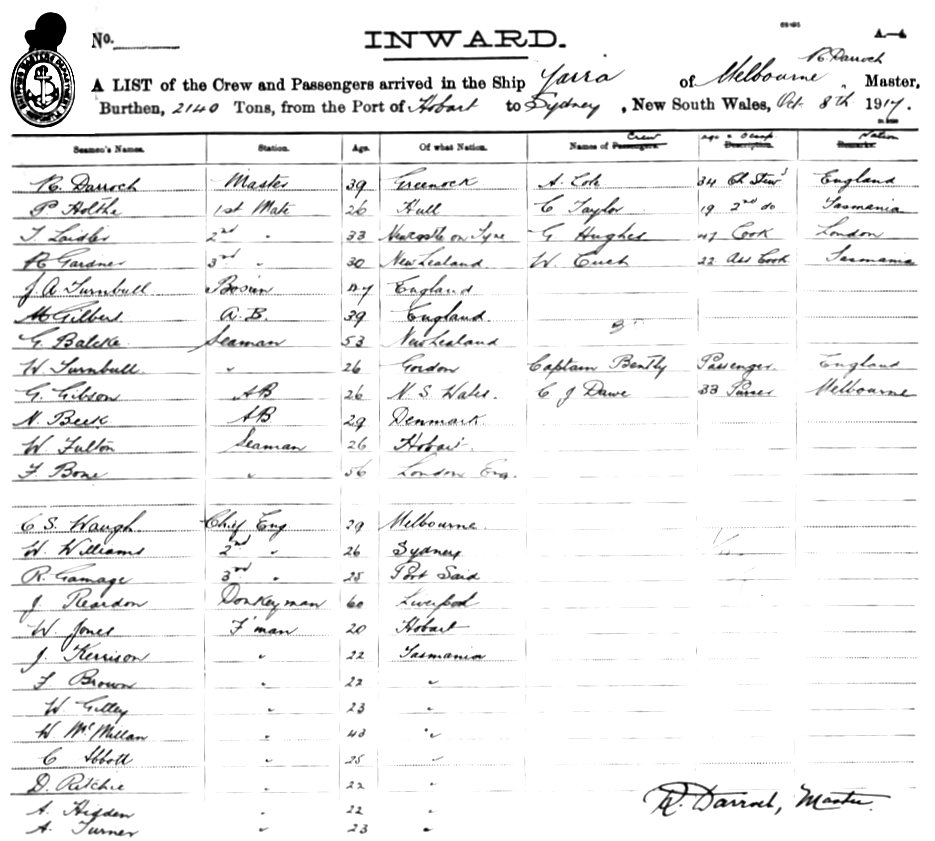 No. INWARD. A—4
R. Darroch
A LIST of the Crew and Passengers arrived in the Ship Yarra of Melbourne, Master,
Burthen, 2140 Tons, from the Port of Hobart to Sydney, New South Wales, Oct. 8th 1917.
Crew age & Occup. Nation
Seamen's Names. Station. Age. Of what Nation. Names of Passengers. Description. Remarks.
R. Darroch Master 39 Greenock A. Cole 34 Ch Stew'd England
P. Holthe 1st Mate 26 Hull C Taylor 19 2nd do Tasmania
T. Laidler 2nd " 33 Newcastle on Tyne G Hughes 47 Cook London
R Gardner 3rd " 30 New Zealand W. Cuch 22 Ass Cook Tasmania
J. A Turnbull Bosun England
M Gilbert A.B. 39 England
G. Balcke Seaman 53 New Zealand
W. Turnbull " 26 Gordon Captain Bently Passenger England
G. Gibson AB 26 N. S. Wales. C J Dawe 33 Purser Melbourne
N. Beek AB 29 Denmark
W. Fulton Seaman 26 Hobart
F. Bone " 56 London Eng.
C S. Waugh Chief Eng 29 Melbourne
W. Williams 2nd " 26 Sydney
R. Gamage 3rd " 25 Port Said
J Reardon Donkeyman 60 Liverpool
W. Jones F'man 20 Hobart
J. Kerrison " 22 Tasmania
F Brown " 22 "
W Gilley " 23 "
W McMillan " 43 "
C Ibbott " 25 "
D. Ritchie " 22 "
R. Darroch, Master.
A. Hidden " 22 "
A. Turner " 23 "